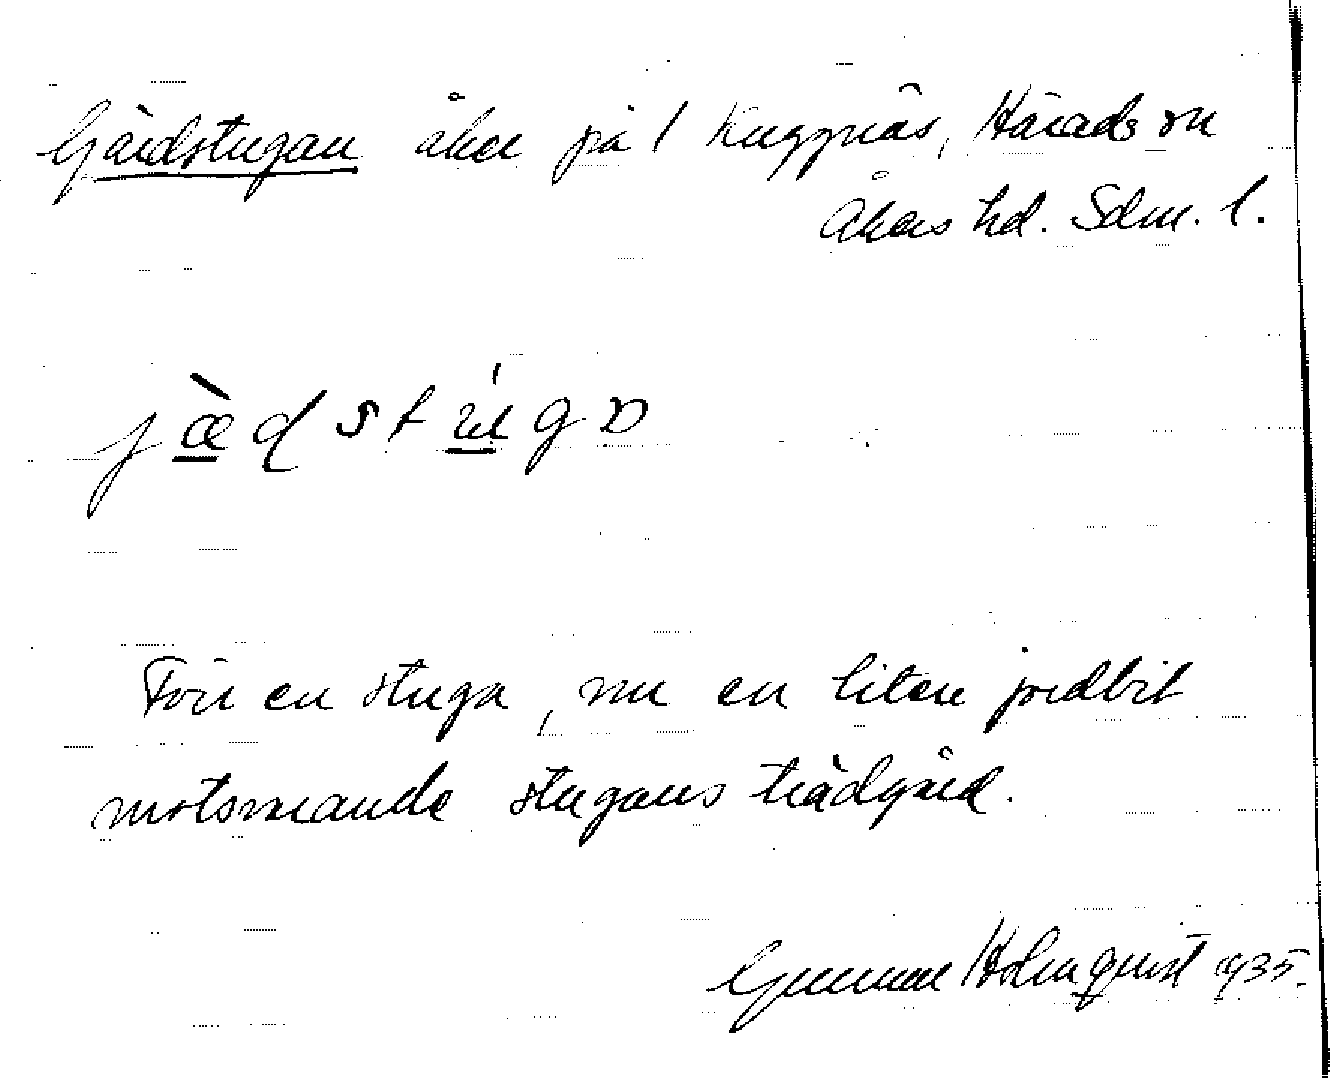 Gärdstugan åker på 1 Kuggnäs, Härads sn
Åkers hd. Sdm. l.
jæ̀dstúgɒ
Förr en stuga, nu en liten jordbit
motsvarande stugans trädgård.
Gunnar Holmquist 1935.